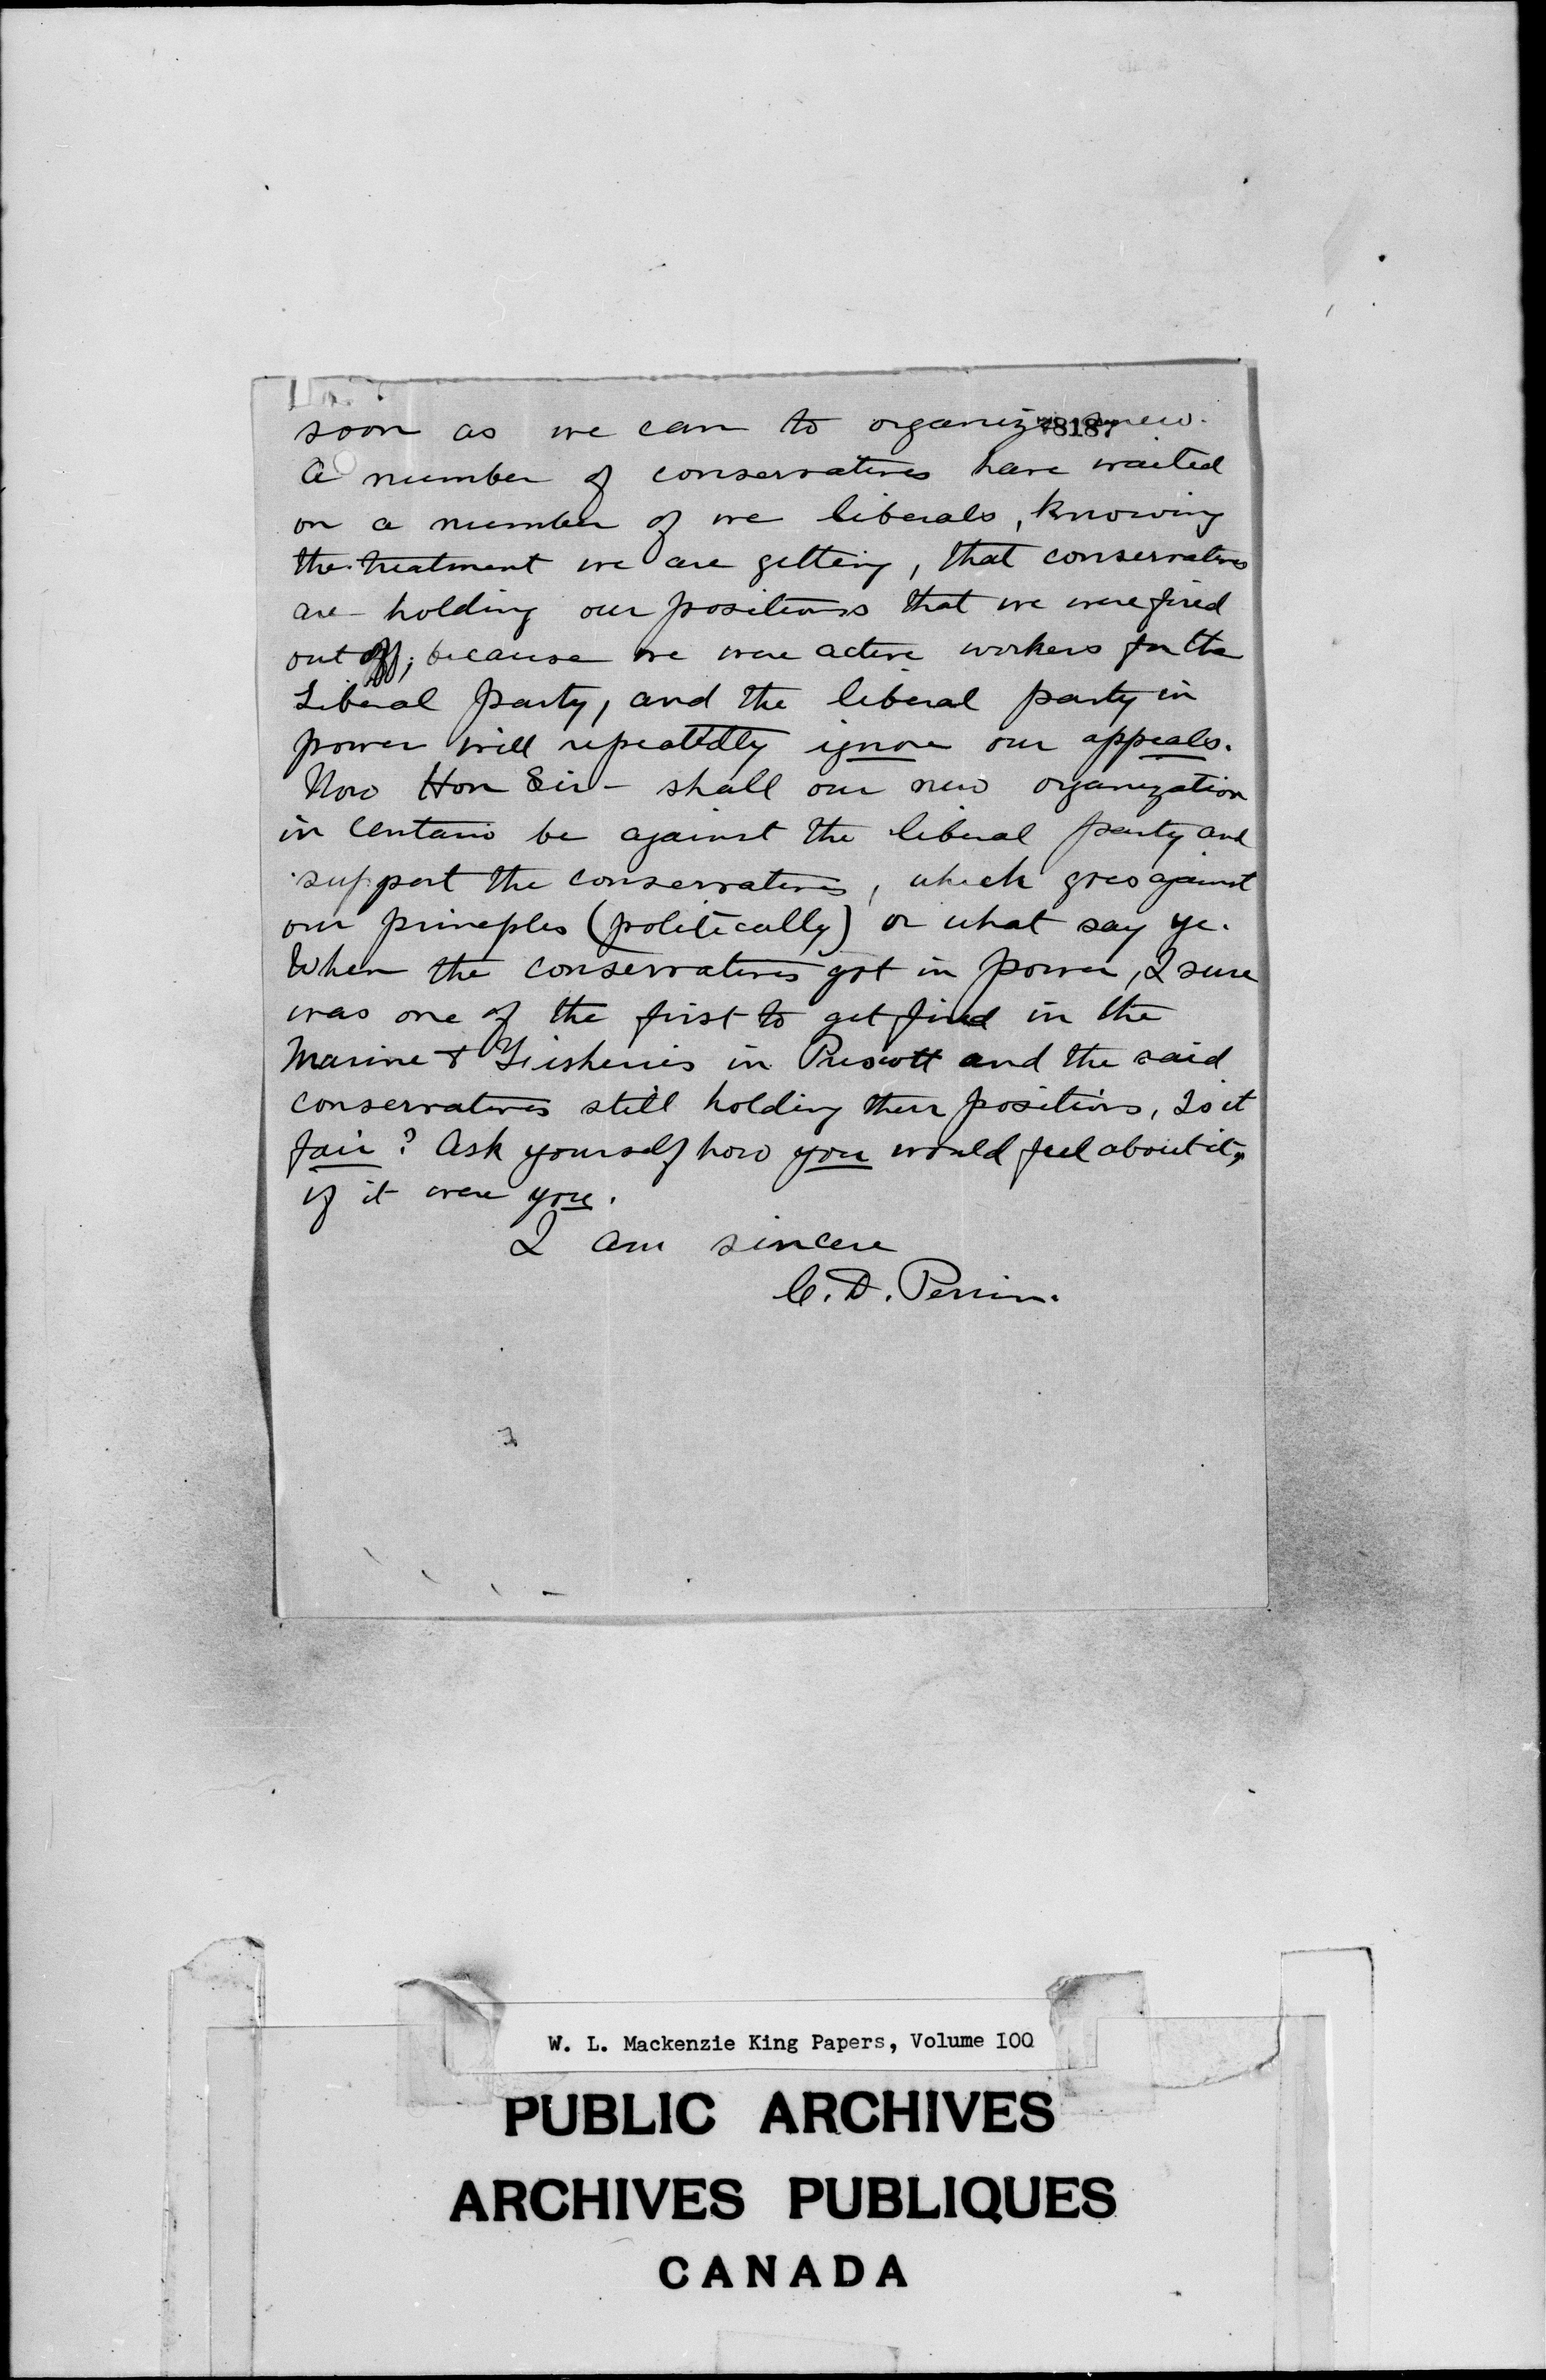 soon as we can to organize anew.
78187
A number of conservatives have waited
on a number of we liberals, knowing
the treatment we are getting, that conservatives
are holding our positions that we were fired
out of; because we were active workers for the
Liberal party, and the liberal party in
power will repeatedly ignore our appeals.
Now Hon Sir - shall our new organization
in Ontario be against the liberal party and
support the conservatives, which goes against
our princples (politically) or what say ye.
When the conservatives got in power, I sure
was one of the first to get fired in the
Marine & Fisheries in Prescott and the said
conservatives still holding their positions, Is it
fair? Ask yourself how you would feel about it,
if it were you.
I am sincere
C. D. Perrin.
W. L. Mackenzie King Papers, Volume 100
PUBLIC ARCHIVES
ARCHIVES PUBLIQUES
CANADA